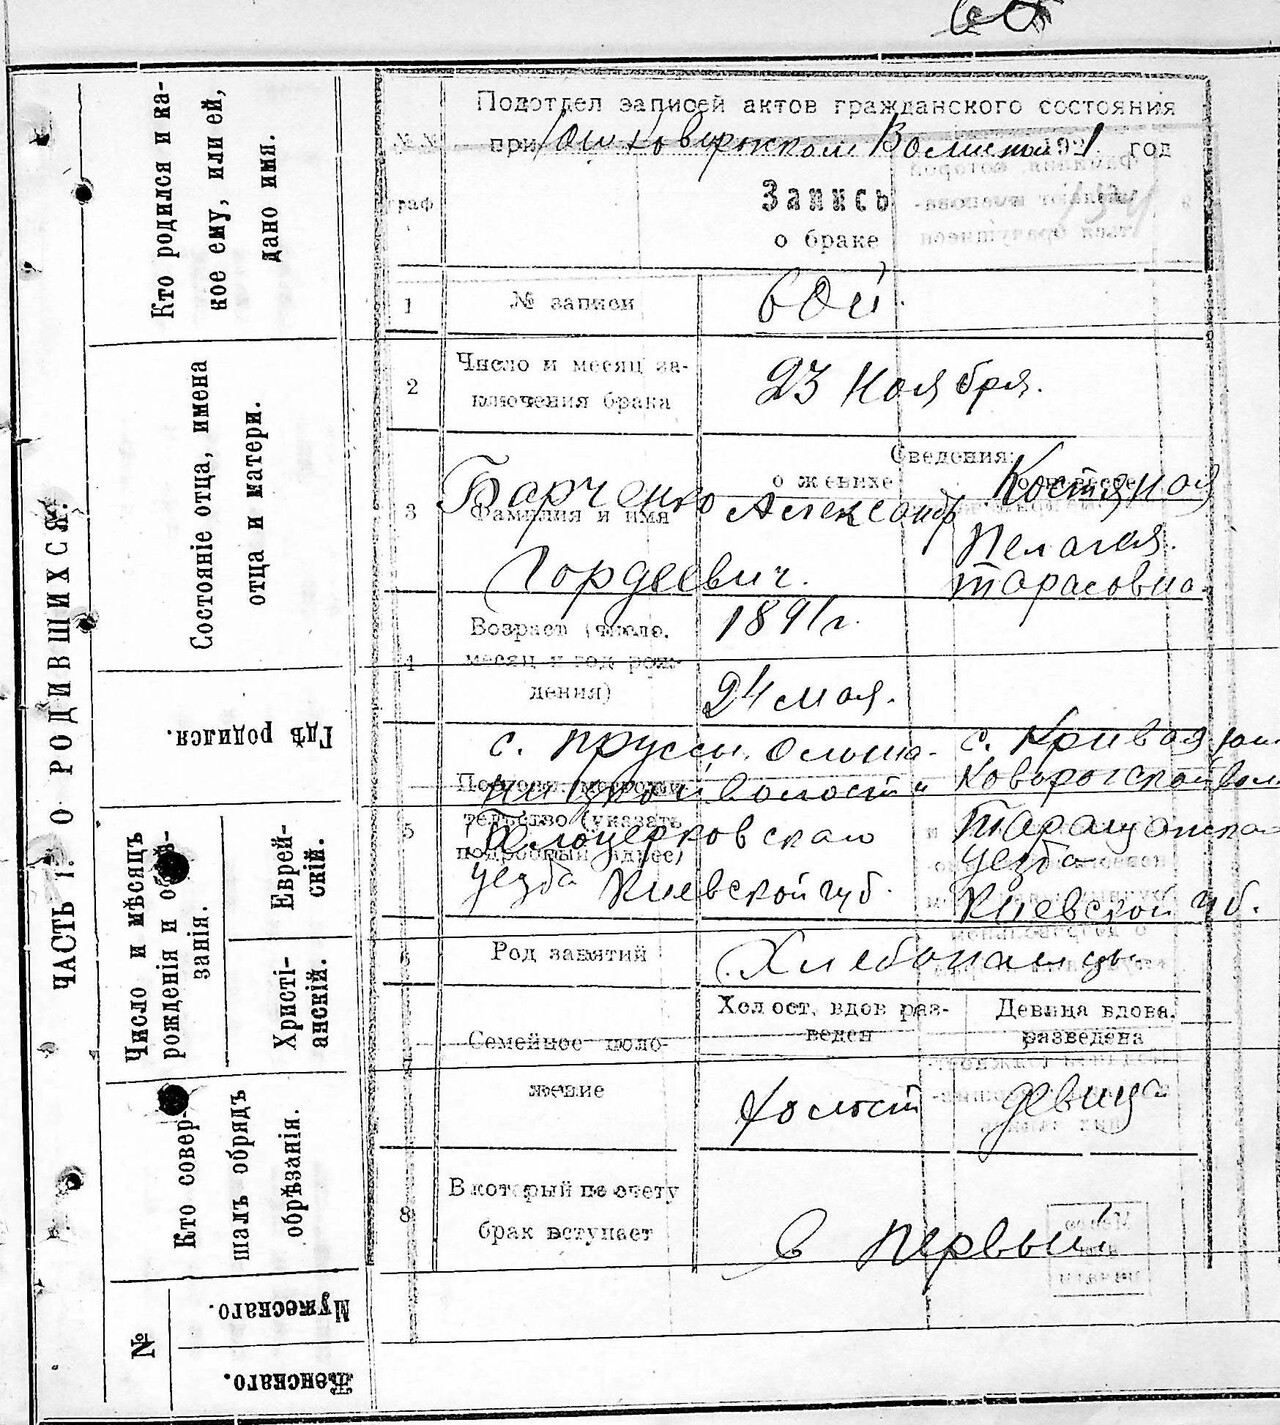 ЧАСТЬ I. О РОДИВШИХСЯ.
Кто родился и ка-
кое ему, или ей,
дано имя.
Состояніе отца, имена
отца и матери.
Гдѣ родился.
Число и мѣсяцъ
рожденія и обрѣ-
занія.
Еврей-
скій.
Христі-
анскій.
Кто совер-
шалъ обрядъ
обрѣзанія.
№
Мужескаго.
Женскаго.
Подотдел записей актов гражданского состояния
№№ при 1921 год
граф
Запись
о браке
1 № записи 60й.
2 Число и месяц за-
ключения брака
23 Ноября.
Сведения:
о женихе
3 Фамилия и имя
Барченко Александр
Гордеевич.
Костяная
Пелагея
Тарасовна.
4 Возраст (число,
месяц и год рож-
дения)
1891 г.
24 мая.
5 подробный адрес)
с. Пруссы
волости
Белоцерковскаго
уезда Киевской губ.
с. Кривая
Таращанска
уезда
Киевской губ.
Род занятий
Хлебопашцы
Семейное поло-
жение
Холост, вдов раз-
веден
Девица вдова,
разведена
холост девица
8 В который по счету
брак вступает
в первый